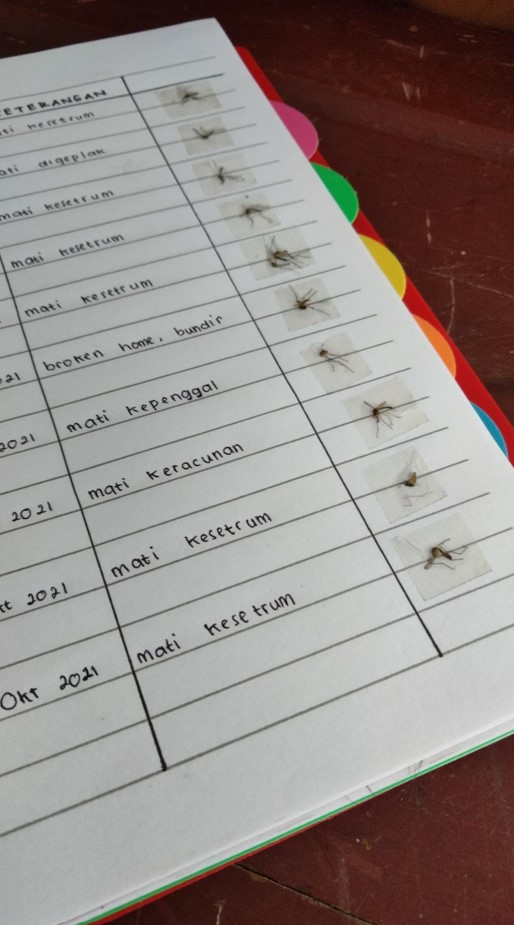 KETERANGAN
mati kesetrum
mati digeplak
mati kesetrum
mati kesetrum
mati kesetrum
21 broken home, bundir
2021 mati kepenggal
2021 mati keracunan
kt 2021 mati kesetrum
Okt 2021 mati kesetrum